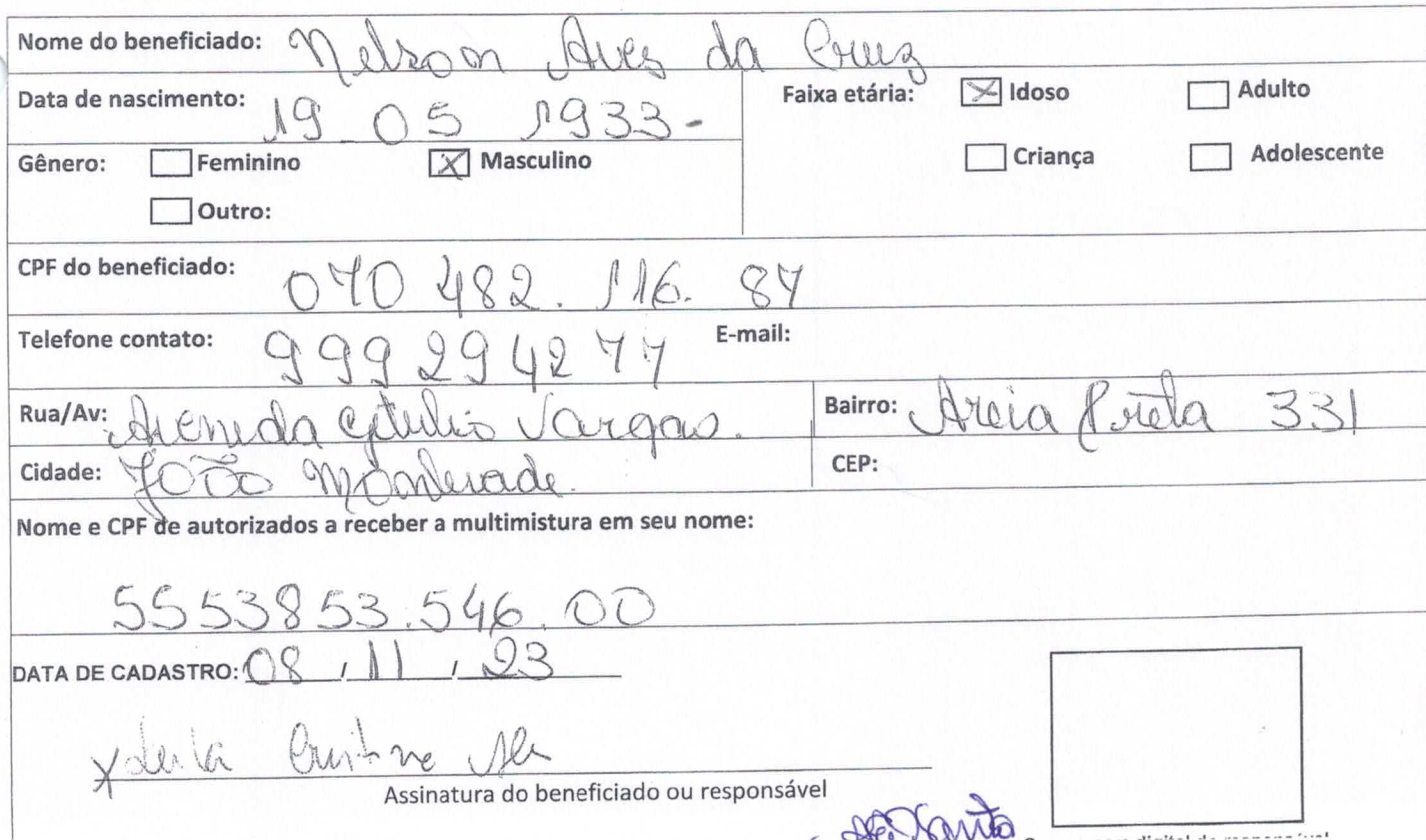 Nome do beneficiado: Nelson Aves da Cruz
Data de nascimento: 19 05 1933-
Faixa etária: Idoso Adulto
Criança Adolescente
Gênero: Feminino Masculino
Outro:
CPF do beneficiado: 070 482. 116. 87
Telefone contato: 999294277 E-mail:
Rua/Av: Avenida Getulio Vargas. Bairro: Areia Preta 331
Cidade: João Monlevade. CEP:
Nome e CPF de autorizados a receber a multimistura em seu nome:
5553853.546.00
DATA DE CADASTRO: 08 / 11 / 23
X
Assinatura do beneficiado ou responsável